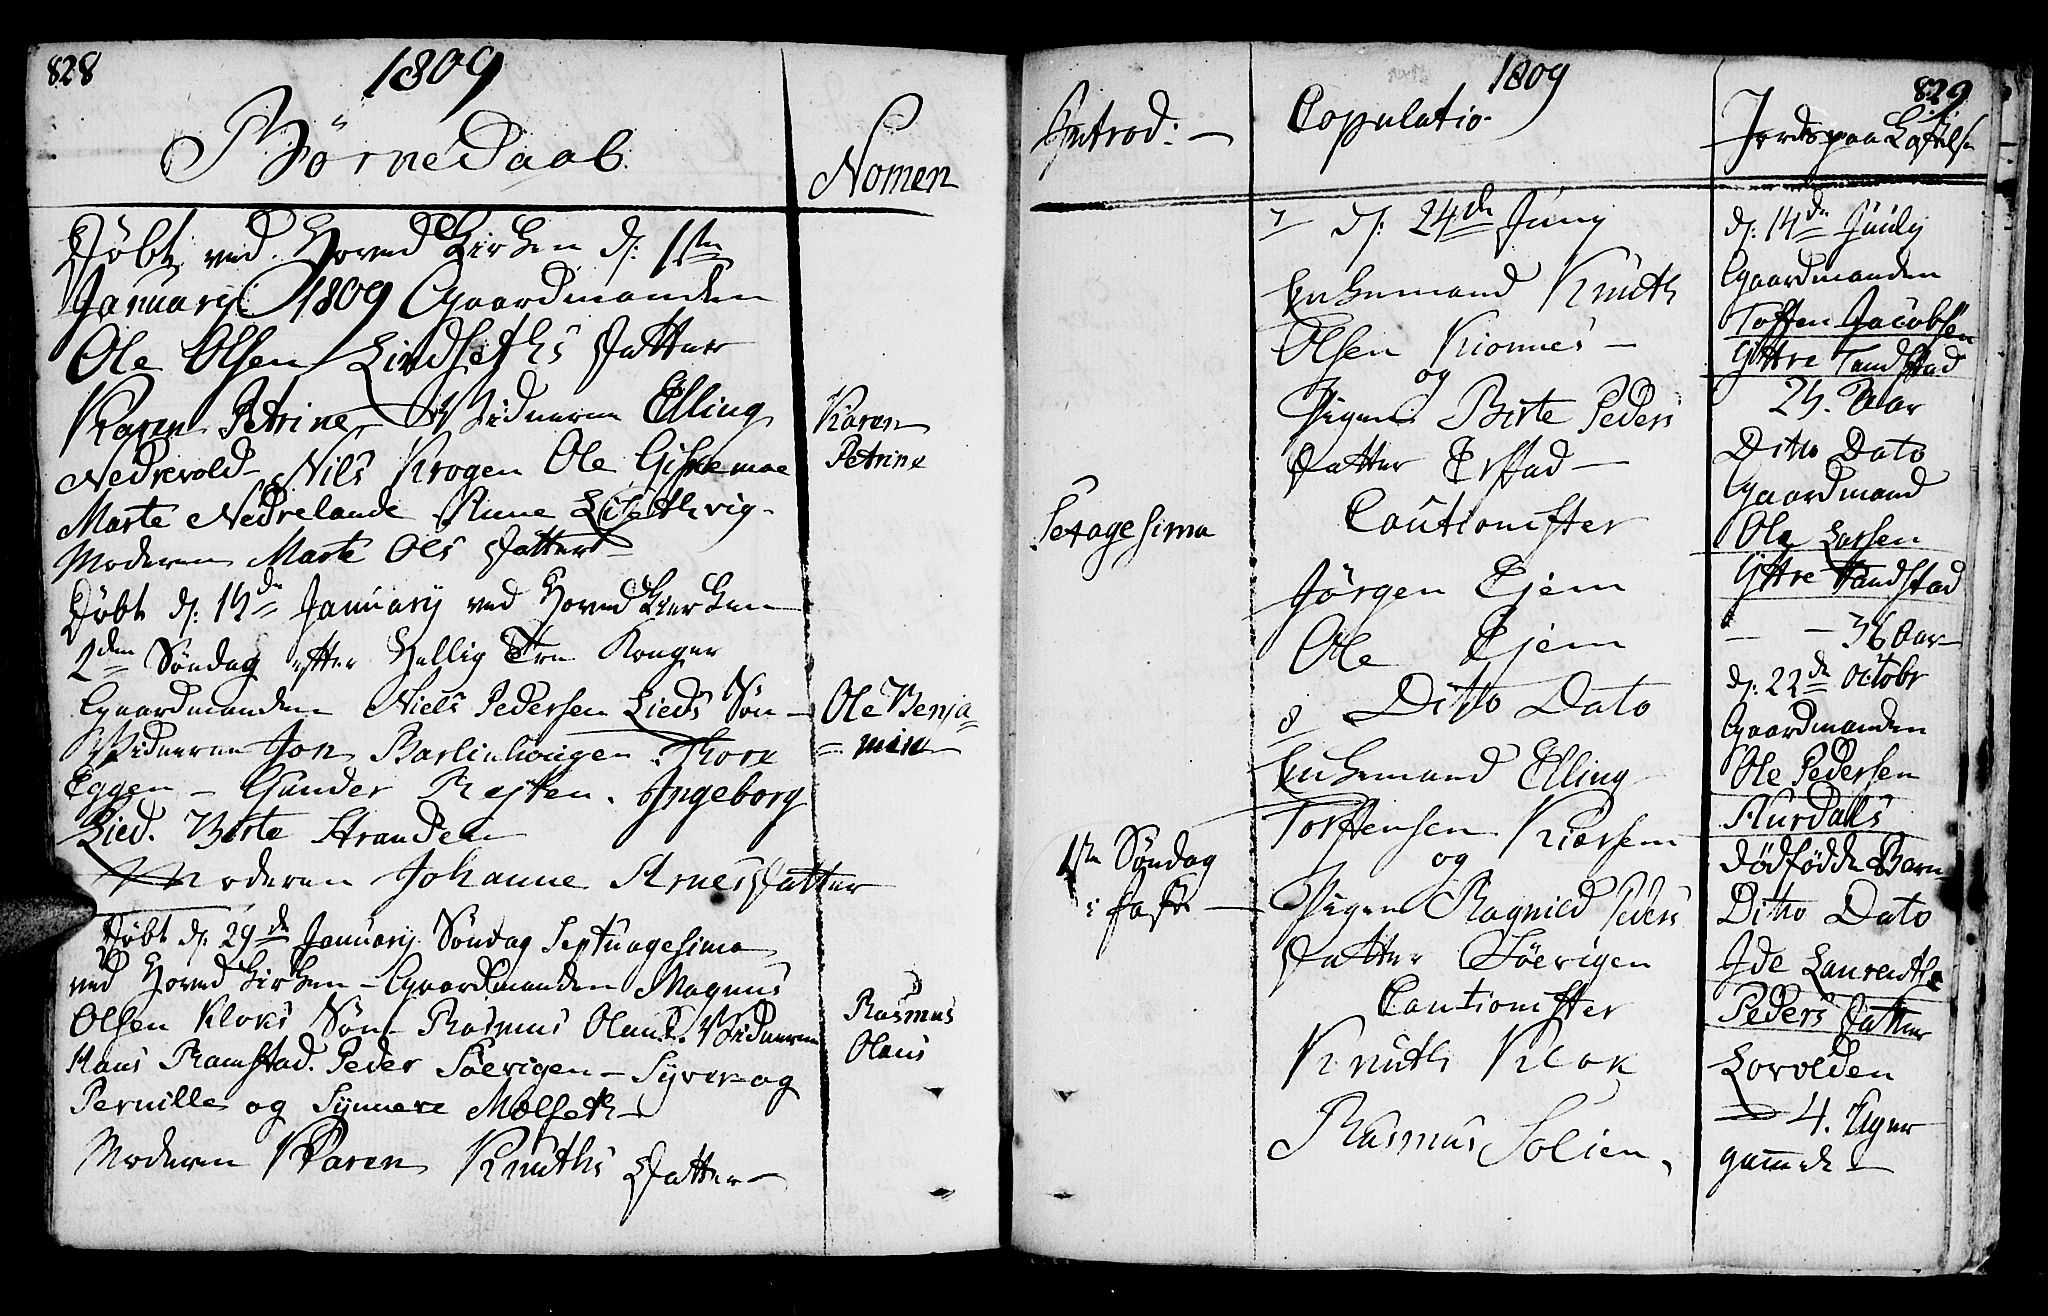 828
1809
Børne Daab
Nomen
Døbt ved Hoved Kirken d: 1ste
January 1809 Gaardmanden
Ole Olsen Lindseths Datter
Karen Petrine Vidnerne Elling
Nedrevold Nils Krogen Ole
Marte Nedrelande Anne
Moderen Marte Ols Datter
Karen
Petrine
Døbt d: 15de January ved Hoved Kierken
2den Søndag efter Hellig Tre Konger
Gaardmanden Niels Pedersen Lieds Søn
Vidnerne Jon Thore
Eggen Gunder Ingeborg
Lied. Birte Stranden
Moderen Johanne Arnes Datter
Ole Benja=
= min
Døbt d: 29de January Søndag Septuagesima
ved Hoved Kirken Gaardmanden Magnus
Olsen Kloks Søn Rasmus Olaus. Vidnerne
Hans Ramstad. Peder Søevigen Syver og
Pernille og Synneve Molseth
Moderen Karen Knuths Datter
Rasmus
Olaus
829
1809
Introd:
Sexagesima
1ste Søndag
i Faste
Copulatio
7 d: 24de Juny
Enkemand Knuth
Olsen Kionnes
og
Pigen Birte Peders
Datter Erstad
Cautionister
Jørgen Ejem
Ole Ejem
8 Ditto Dato
Enkemand Elling
Torstensen Kiersem
og
Pigen Ragnild Peders
Datter Søevigen
Cautionister
Knuth Klok
Rasmus Solien
Jords paa Kastelse
d: 14de Juuly
Gaardmanden
Toffen Jacobsen
Yttre Tandstad
Aar
Ditto Dato
Gaardmand
Ole Larsen
Yttre Tandstad
36 Aar
d: 22de Octobr
Gaardmanden
Ole Pedersen
Aurdahls
dødfødde Barn
Ditto Dato
Ide Laurentse
Peders Datter
Lovolden
4. Uger
gammel